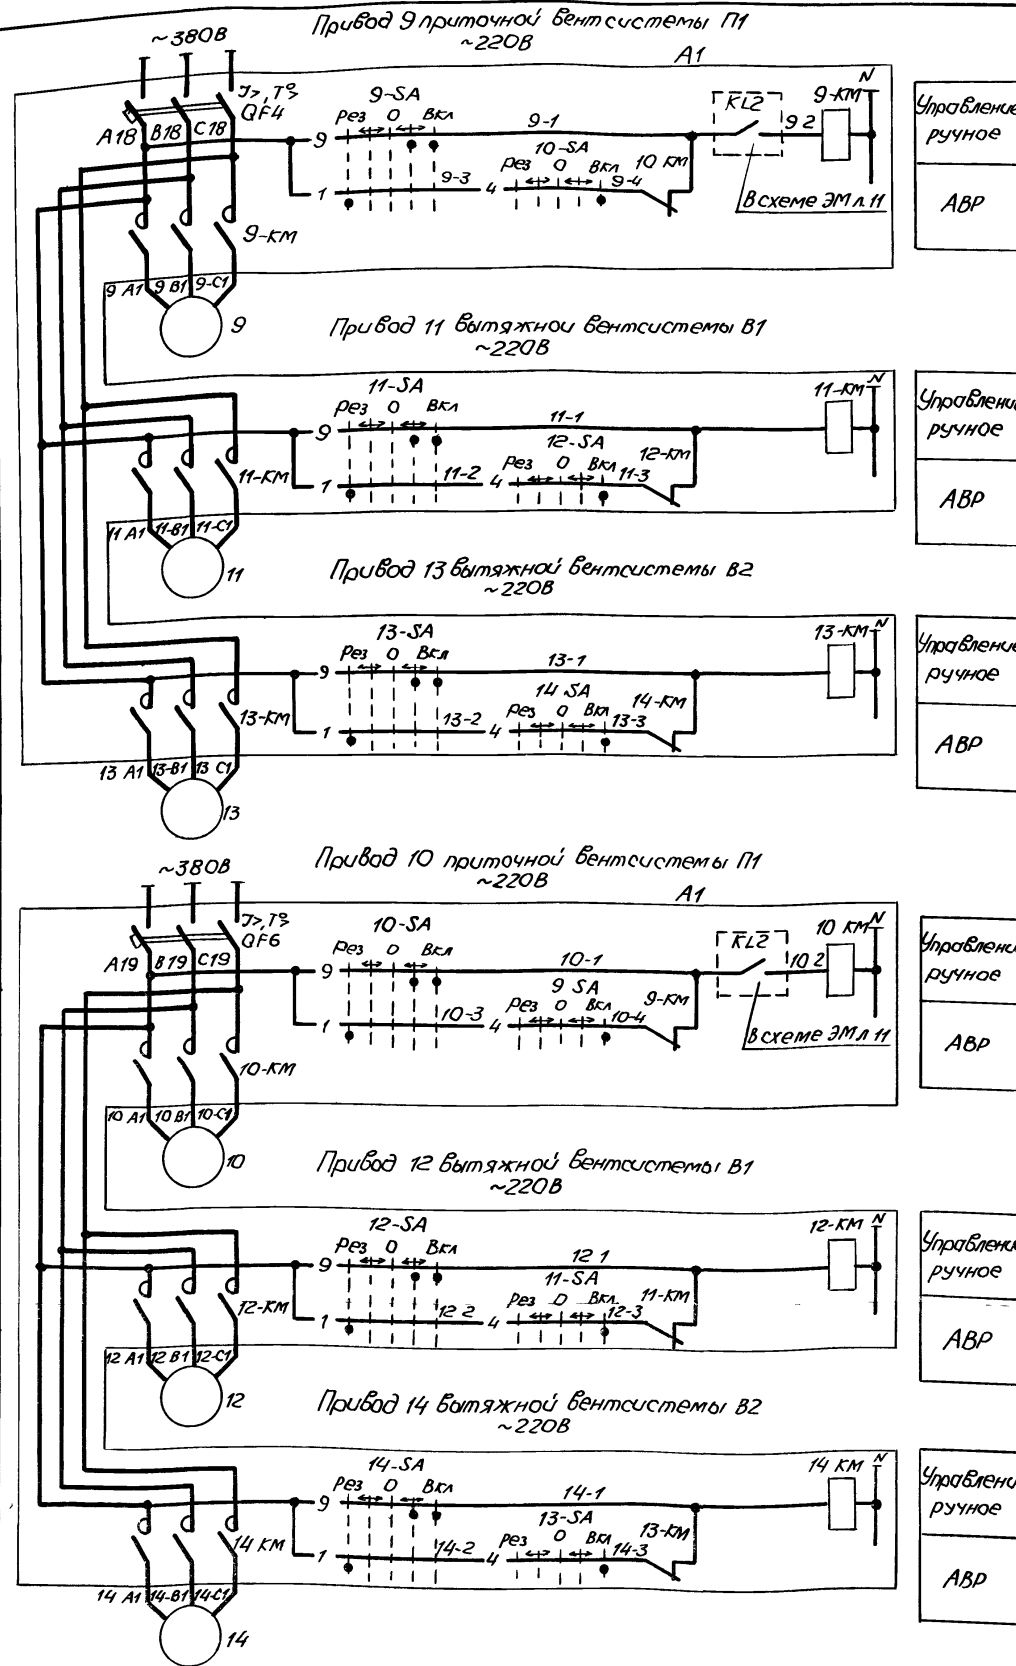 Привод 9 приточной вентсистемы П1
~380В
~220В
А1
J>, T°>
QF4
А18 В18 С18
9-SA
Рез 0 Вкл
9 9-1
KL2
9 2
9-КМ
N
10-SA
Рез 0 Вкл
10 КМ
1 9-3 4 9-4
В схеме ЭМ л 11
9-КМ
9 А1 9 В1 9-С1
9
Управление
ручное
АВР
Привод 11 вытяжной вентсистемы В1
~220В
11-SA
Рез 0 Вкл
9 11-1
11-КМ
N
12-SA
Рез 0 Вкл
12-КМ
1 11-2 4 11-3
11-КМ
11 А1 11-В1 11-С1
11
Управление
ручное
АВР
Привод 13 вытяжной вентсистемы В2
~220В
13-SA
Рез 0 Вкл
9 13-1
13-КМ
N
14 SA
Рез 0 Вкл
14-КМ
1 13-2 4 13-3
13-КМ
13 А1 13-В1 13 С1
13
Управление
ручное
АВР
Привад 10 приточной вентсистемы П1
~380В
~220В
А1
J>, T°>
QF6
А19 В19 С19
10-SA
Рез 0 Вкл
9 10-1
KL2
10 2
10 КМ
N
9 SA
Рез 0 Вкл
9-КМ
1 10-3 4 10-4
В схеме ЭМ л 11
10-КМ
10 А1 10 В1 10-С1
10
Управлени
ручное
АВР
Привод 12 вытяжной вентсистемы В1
~220В
12-SA
Рез 0 Вкл
9 12 1
12-КМ
N
11-SA
Рез 0 Вкл
11-КМ
1 12 2 4 12-3
12-КМ
12 А1 12 В1 12-С1
12
Управлени
ручное
АВР
Привод 14 вытяжной вентсистемы В2
~220В
14-SA
Рез 0 Вкл
9 14-1
14 КМ
N
13-SA
Рез 0 Вкл
13-КМ
1 14-2 4 14-3
14 КМ
14 А1 14-В1 14-С1
14
Управлени
ручное
АВР